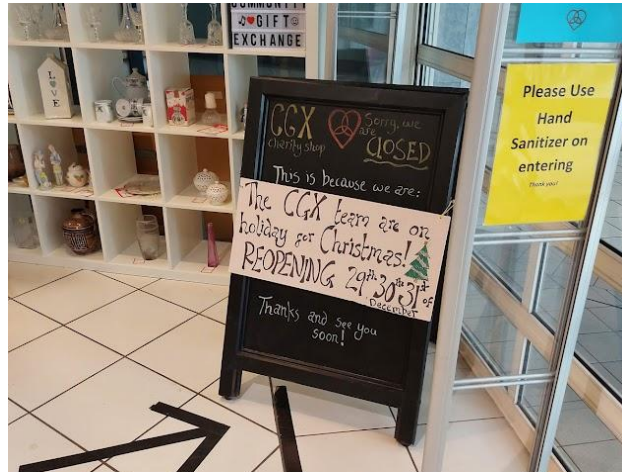 COMMUNITY
♫♥GIFT☺
EXCHANGE
LOVE
CGX
charity shop
Sorry, we
are
CLOSED
This is because we are:
The CGX team are on
holiday for Christmas!
REOPENING 29th 30th 31st of
December
Thanks and see you
soon!
Please Use
Hand
Sanitizer on
entering
Thank you!